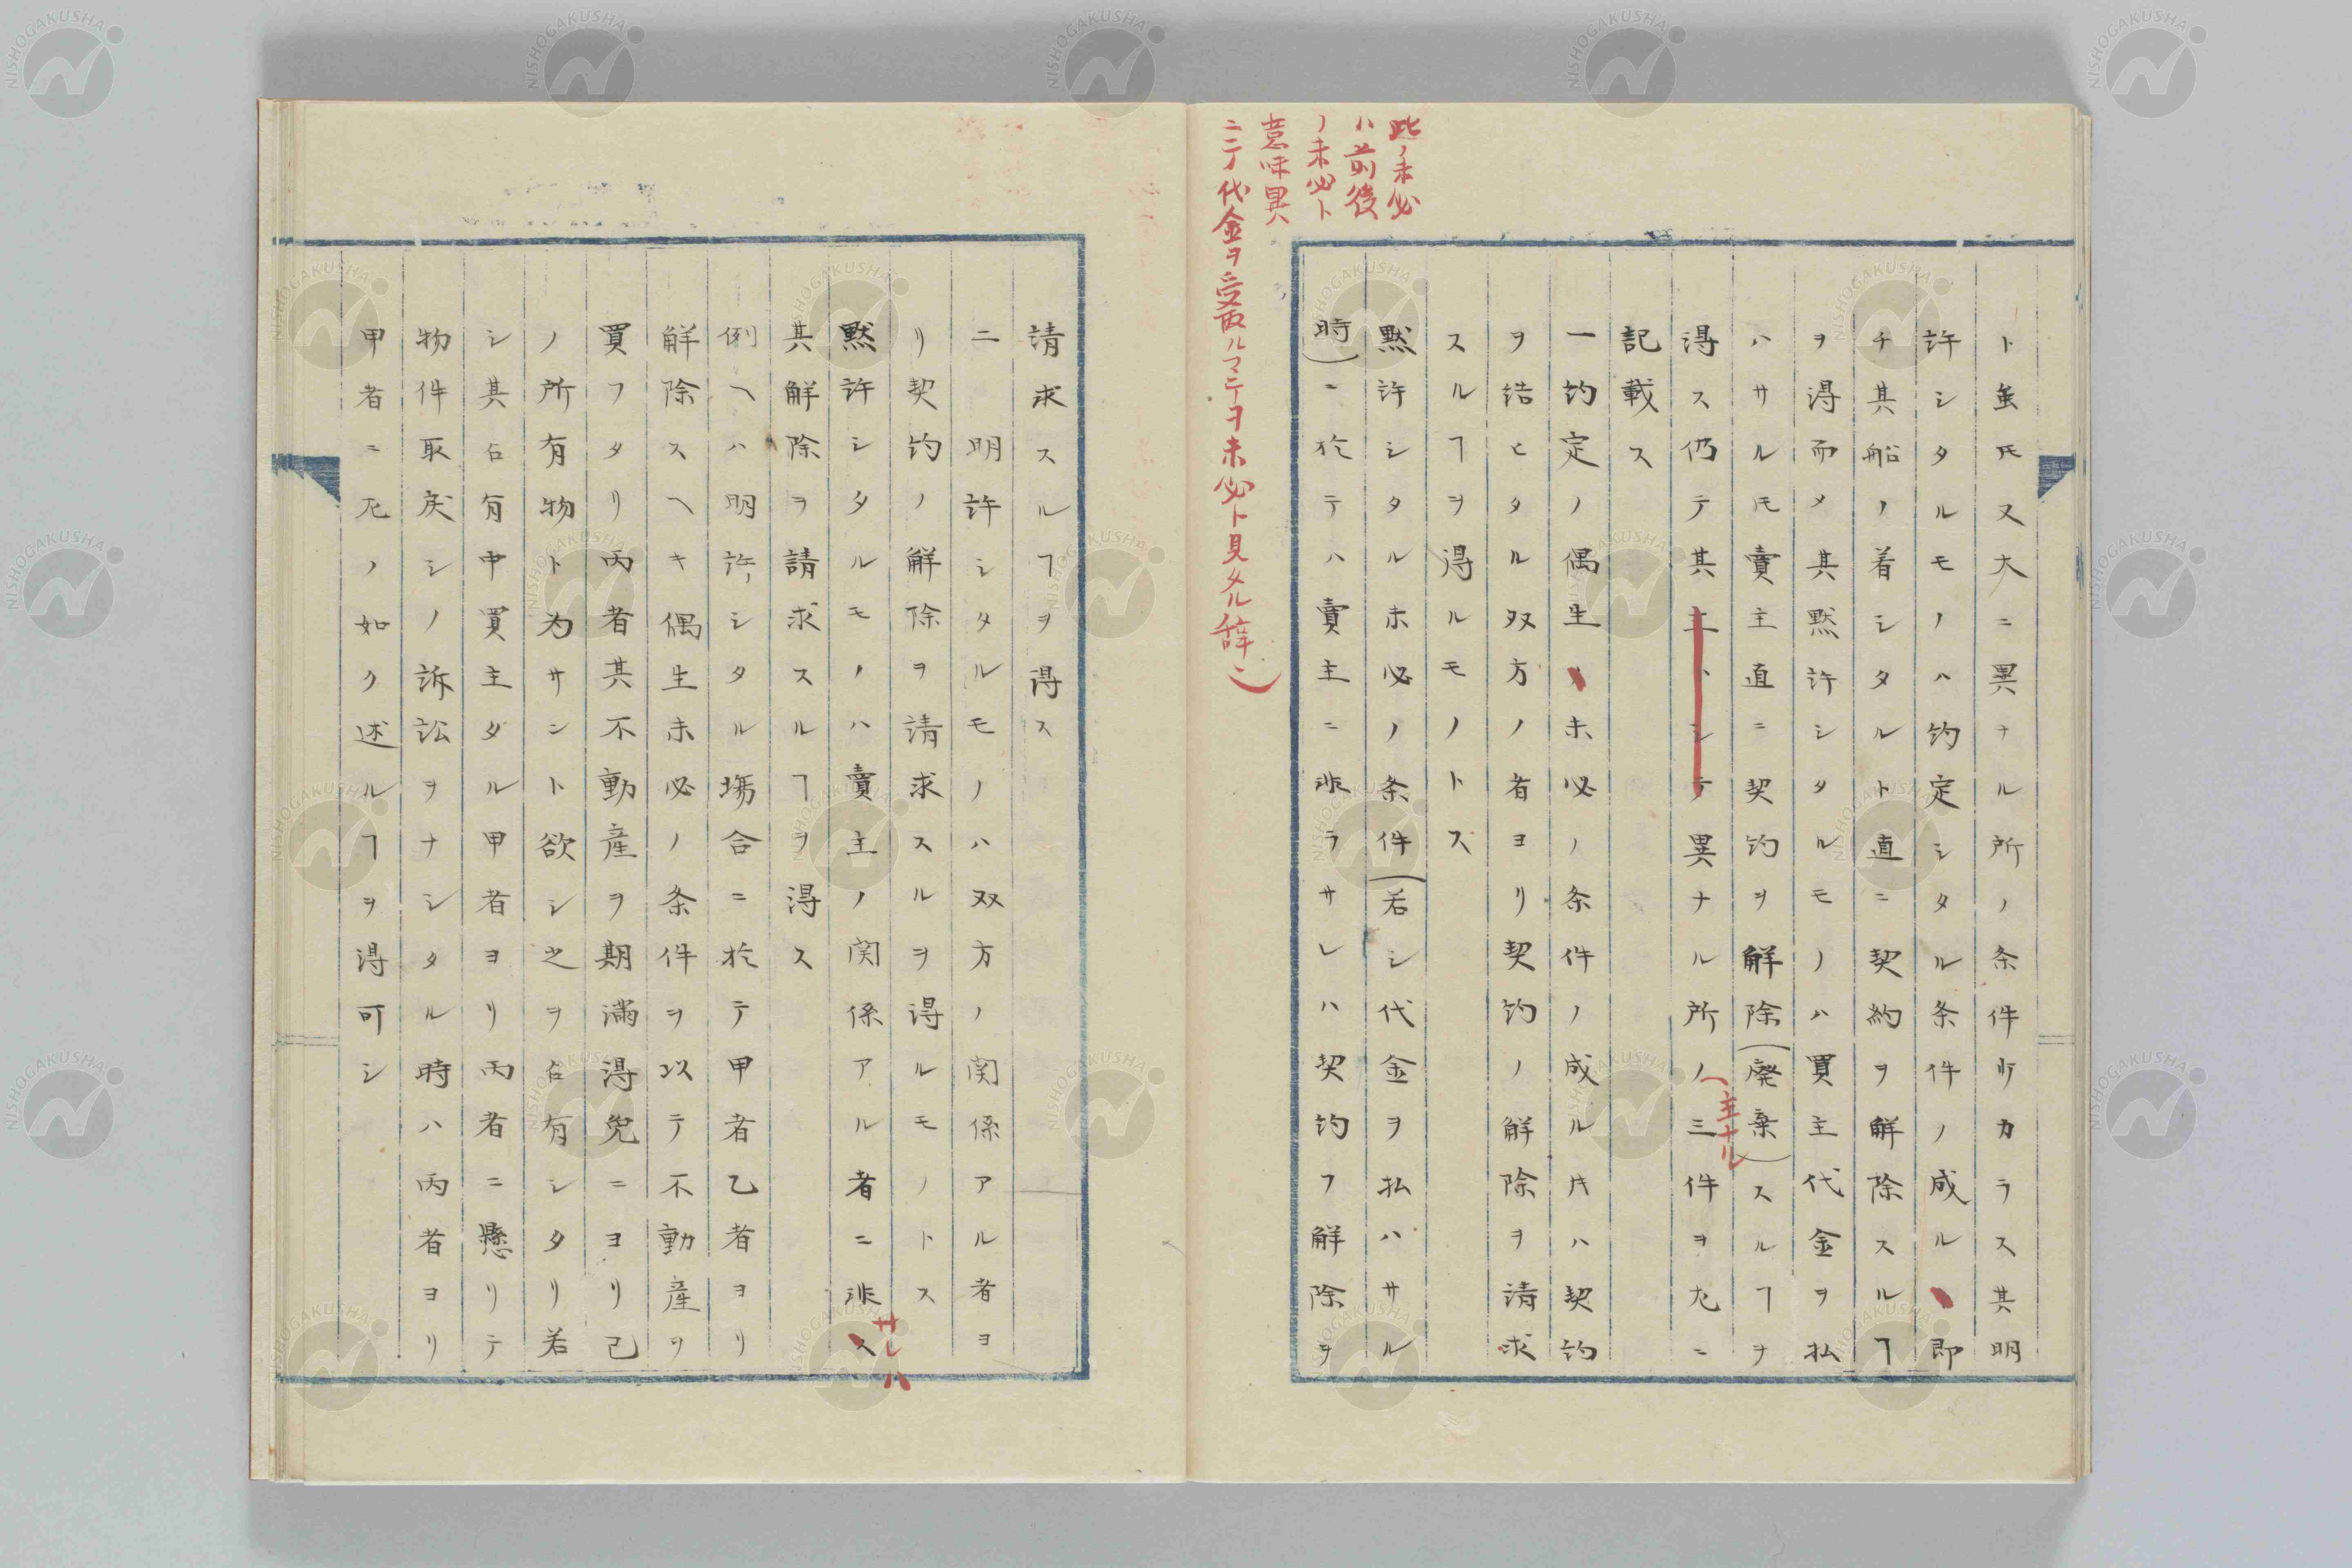 ト雖𪜈又大ニ異ナル所ノ条件少カラス其明
許シタルモノハ約定シタル条件ノ成ル即
チ其船ノ着シタルト直ニ契約ヲ解除スルヿ
ヲ得而メ其黙許シタルモノハ買主代金ヲ払
ハサルモ賣主直ニ契約ヲ解除(廢棄)スルヿヲ
得ス仍テ其主トシテ異ナル所ノ三件ヲ左ニ
(主ナル
記載ス
一約定ノ偶生メ未必ノ条件ノ成ル片ハ契約
ヲ結ヒタル双方ノ者ヨリ契約ノ解除ヲ請求
スルヿヲ得ルモノトス
黙許シタル未必ノ条件(若シ代金ヲ払ハサル
時)ニ於テハ賣主ニ非ラサレハ契約ノ解除ヲ
此ノ未必
ハ前後
ノ未必ト
意味異ハ
ニテ代金ヲ受取ルマテヲ未必ト見タル辞ニ)
請求スルヿヲ得ス
二 明許シタルモノハ双方ノ関係アル者ヨ
リ契約ノ解除ヲ請求スルヲ得ルモノトス
黙許シタルモノハ賣主ノ関係アル者ニ非ス
サレハ
其解除ヲ請求スルヿヲ得ス
例ヘハ明許シタル場合ニ於テ甲者乙者ヨリ
解除スヘキ偶生未必ノ条件ヲ以テ不動産ヲ
買フタリ丙者其不動産ヲ期満得免ニヨリ己
ノ所有物ト為サント欲シ之ヲ占有シタリ若
シ其占有中買主タル甲者ヨリ丙者ニ懸リテ
物件取戻シノ訴訟ヲナシタル時ハ丙者ヨリ
甲者ニ左ノ如ク述ルヿヲ得可シ
NISHOGAKUSHA